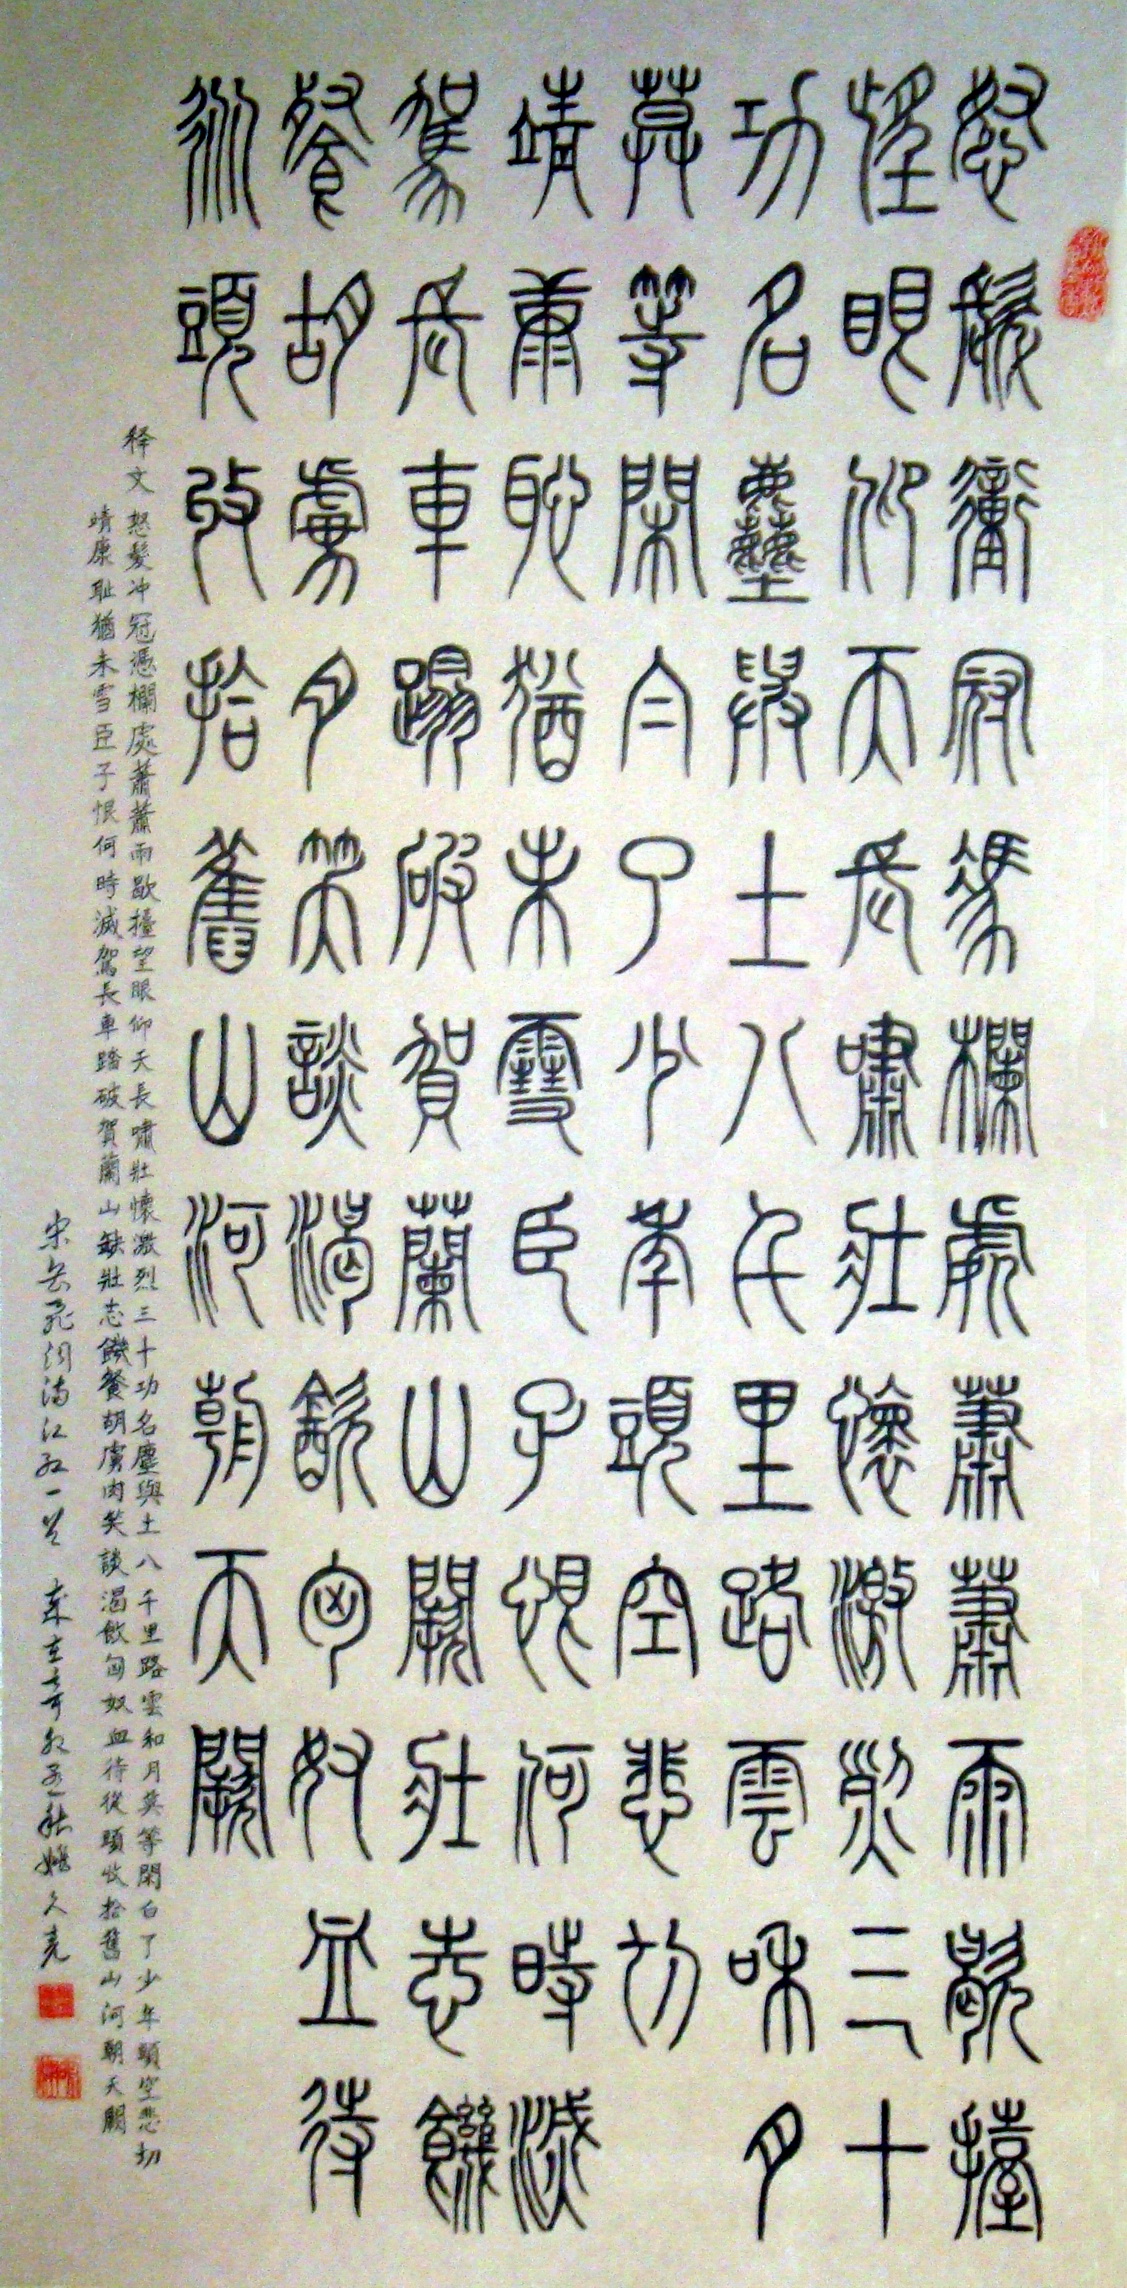 怒髮衝冠馮欄處蕭蕭雨歇擡
望眼仰天長嘯壯懷激烈三十
功名塵與土八千里路雲和月
莫等閑白了少年頭空悲切
靖康恥猶未雪臣子恨何時滅
駕長車蹋破賀蘭山闕壯志饑
餐胡虜肉笑談渴飲匈奴血待
從頭收拾舊山河朝天闕
释文 怒髮冲冠憑欄處蕭蕭雨歇擡望眼仰天長嘯壯懷激烈三十功名塵與土八千里路雲和月莫等閑白了少年頭空悲切
靖康耻猶未雪臣子恨何時滅駕長車踏破賀蘭山缺壯志饑餐胡虜肉笑談渴飲匈奴血待從頭收拾舊山河朝天闕
宋岳飛詞滿江红一首